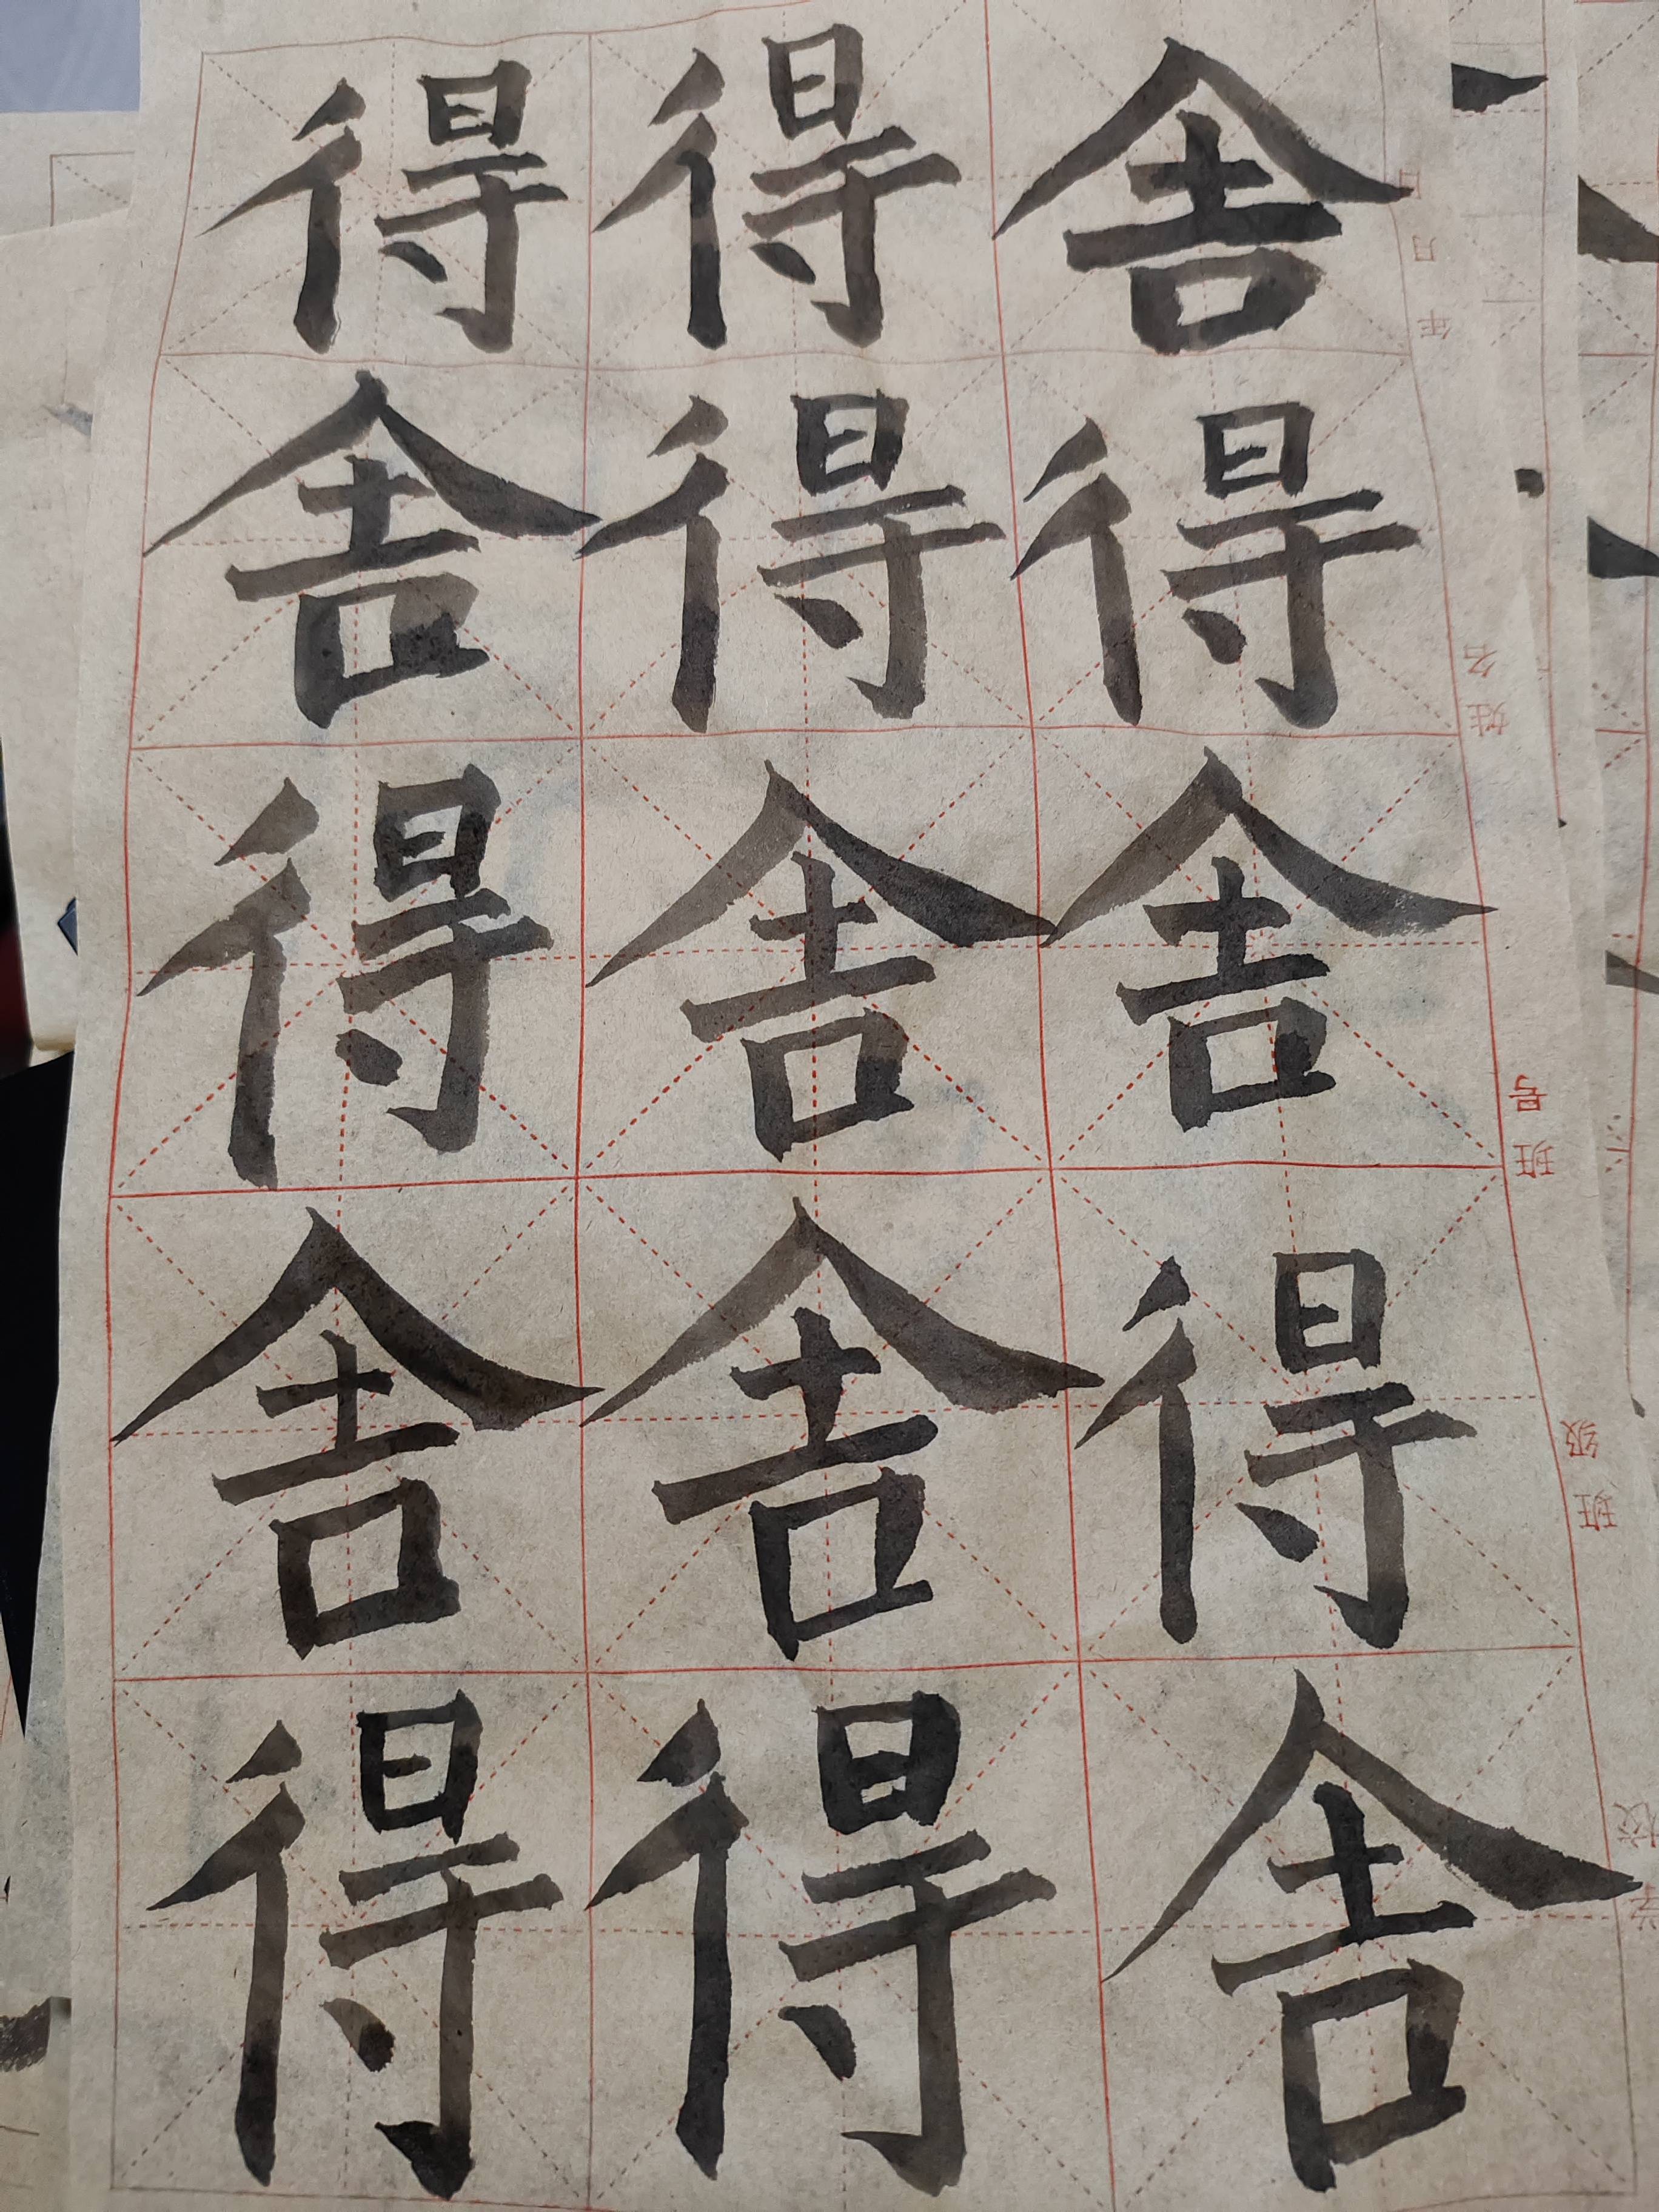 得得舍
舍得得
得舍舍
舍舍得
得得舍
学校 班级 班号 姓名 年 月 日